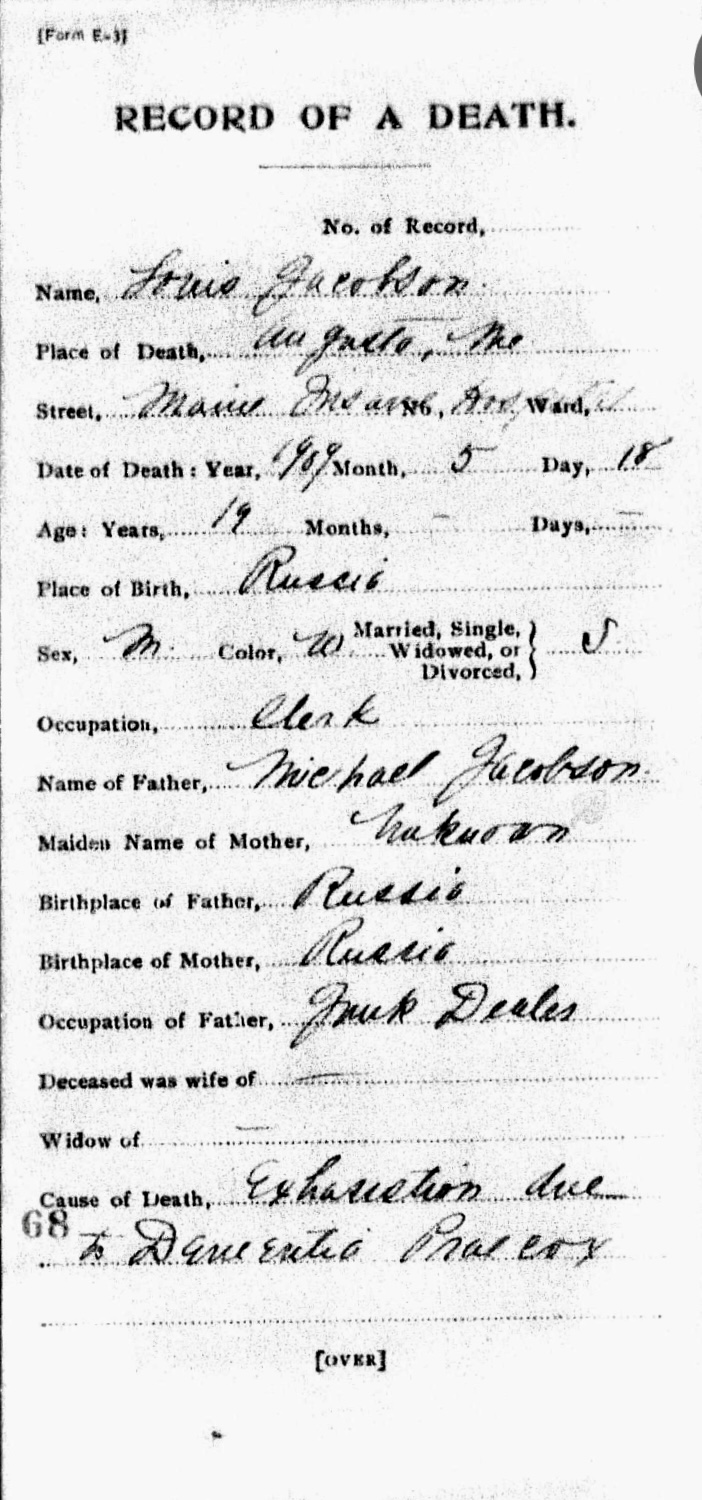 [Form E-3]
RECORD OF A DEATH.
No. of Record,
Name, Louis Jacobson
Place of Death, Augusta, Me
Street, Maine Insane No, Hospital Ward,
Date of Death: Year, 1909 Month, 5 Day, 18
Age: Years, 19 Months, – Days, –
Place of Birth, Russia
Sex, M. Color, W Married, Single,
Widowed, or S
Divorced,
Occupation, Clerk
Name of Father, Michael Jacobson
Maiden Name of Mother, Unknown
Birthplace of Father, Russia
Birthplace of Mother, Russia
Occupation of Father, Junk Dealer
Deceased was wife of –
Widow of –
Cause of Death, Exhaustion due
68
to Dementia Praecox
[OVER]